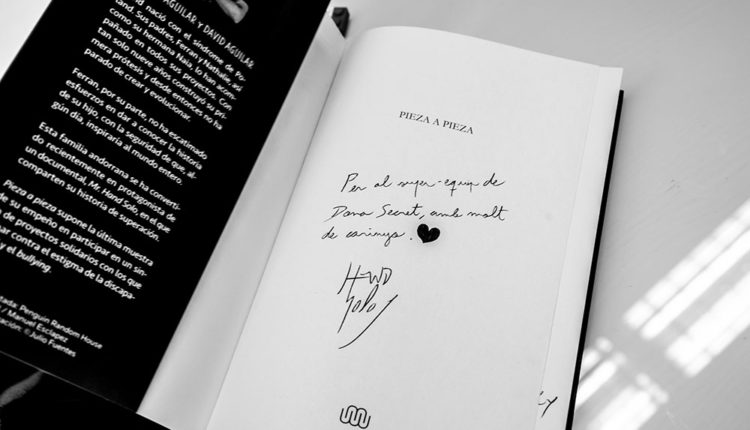 AGUILAR Y DAVID AGUILAR
d nació con el síndrome de Po-
land. Sus padres, Ferran y Nathalie, así
como su hermana Naia, lo han acom-
pañado en todos sus proyectos. Con
tan solo nueve años construyó su pri-
mera prótesis y desde entonces no ha
parado de crear y evolucionar.
Ferran, por su parte, no ha escatimado
esfuerzos en dar a conocer la historia
de su hijo, con la seguridad de que, al-
gún día, inspiraría al mundo entero.
Esta familia andorrana se ha converti-
do recientemente en protagonista de
un documental, Mr. Hand Solo, en el que
comparten su historia de superación.
Pieza a pieza supone la última muestra
de su empeño en participar en un sin-
de proyectos solidarios con los que
ar contra el estigma de la discapa-
y el bullying.
tada: Penguin Random House
/ Manuel Esclapez
ación: © Julio Fuentes
PIEZA A PIEZA
Per al super-equip de
Dona Secret, amb molt
de carinyo.
HAND
Solo